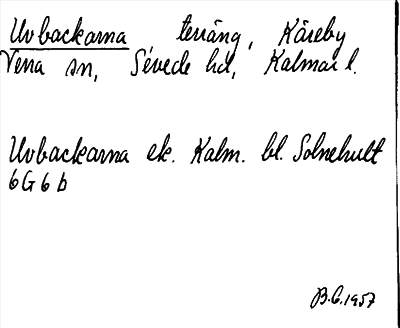 Uvbackarna terräng, Käreby
Vena sn, Sevede hd, Kalmar l.
Uvbackarna ek. Kalm. bl. Solnehult
6G6b
B.G. 1957